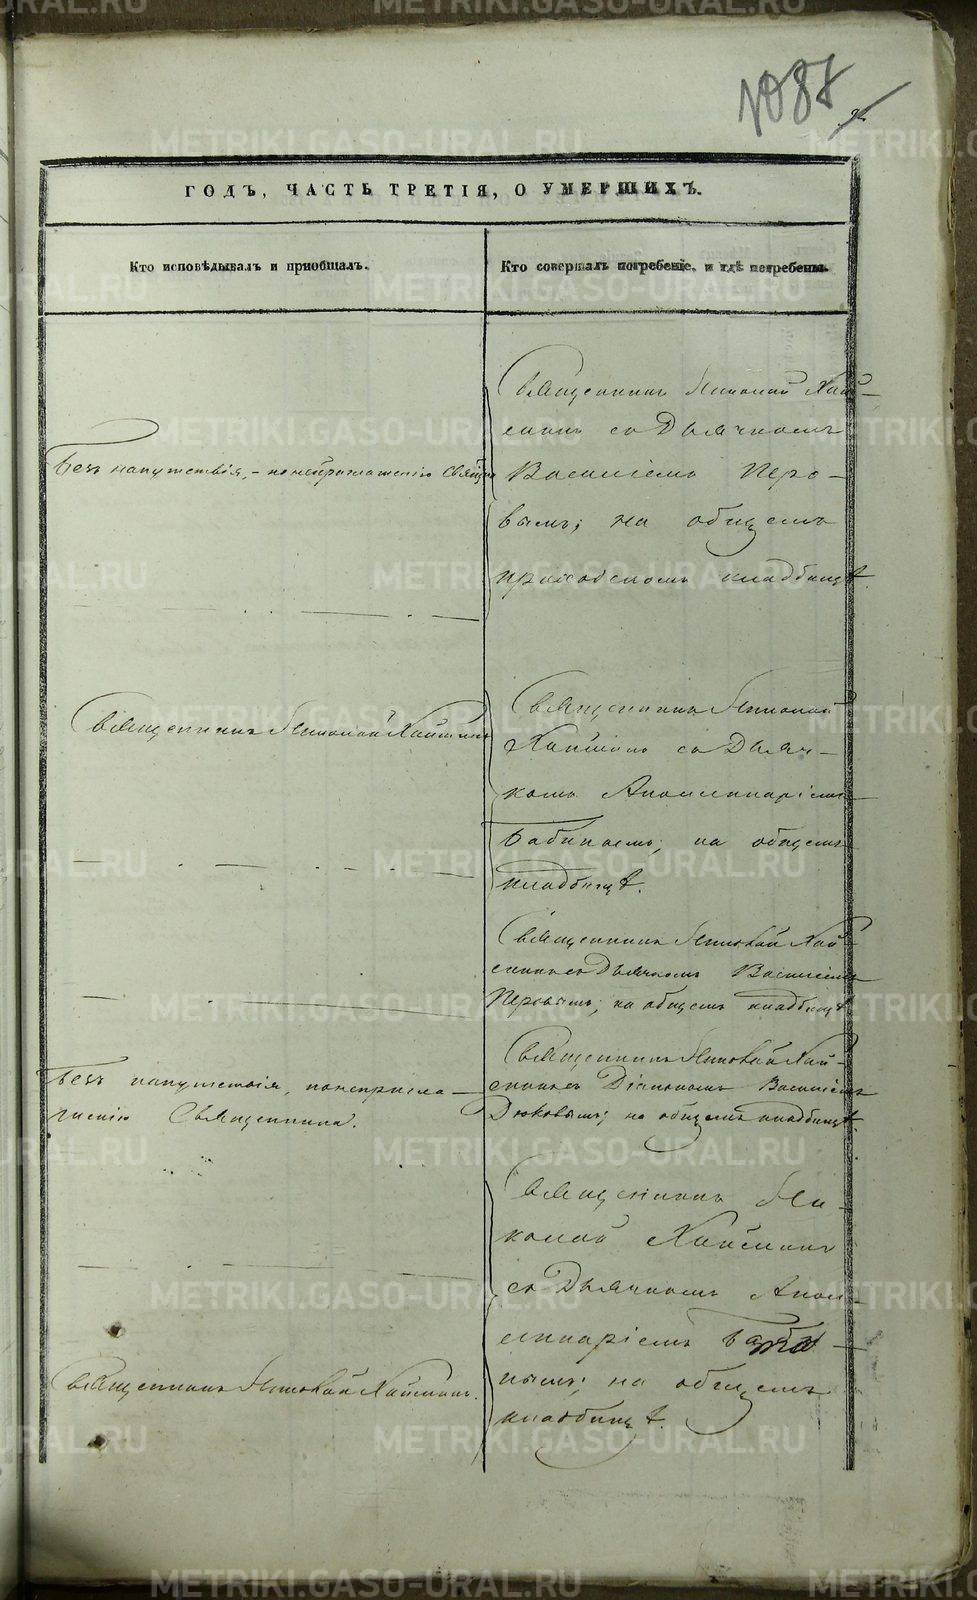 1087
ГОДЪ, ЧАСТЬ ТРЕТІЯ, О УМЕРШИХЪ.
Кто исповѣдывалъ и приобщалъ.
Кто совершалъ погребеніе, и гдѣ погребены.
Безъ напутствія, – по
Священникъ Николай Хай-
съ Дьячкомъ
Василіемъ Перо-
вымъ; на общемъ
приходскомъ кладбищѣ.
Священникъ Николай
Священникъ Николай
съ Дьяч-
комъ Аполлинаріемъ
Бабинымъ; на общемъ
кладбищѣ.
Священникъ Николай Хай-
съ Дьячкомъ Василіемъ
Перовымъ; на общемъ кладбищѣ.
Безъ напутствія, по непригла-
шенію Священника.
Священникъ Николай Хай-
съ Діакономъ Василіемъ
Дюковымъ; на общемъ кладбищѣ.
Священникъ Николай
Священникъ Ни-
колай
съ Дьячкомъ Апол-
линаріемъ Баби-
нымъ; на общемъ
кладбищѣ.
METRIKI.GASO-URAL.RU